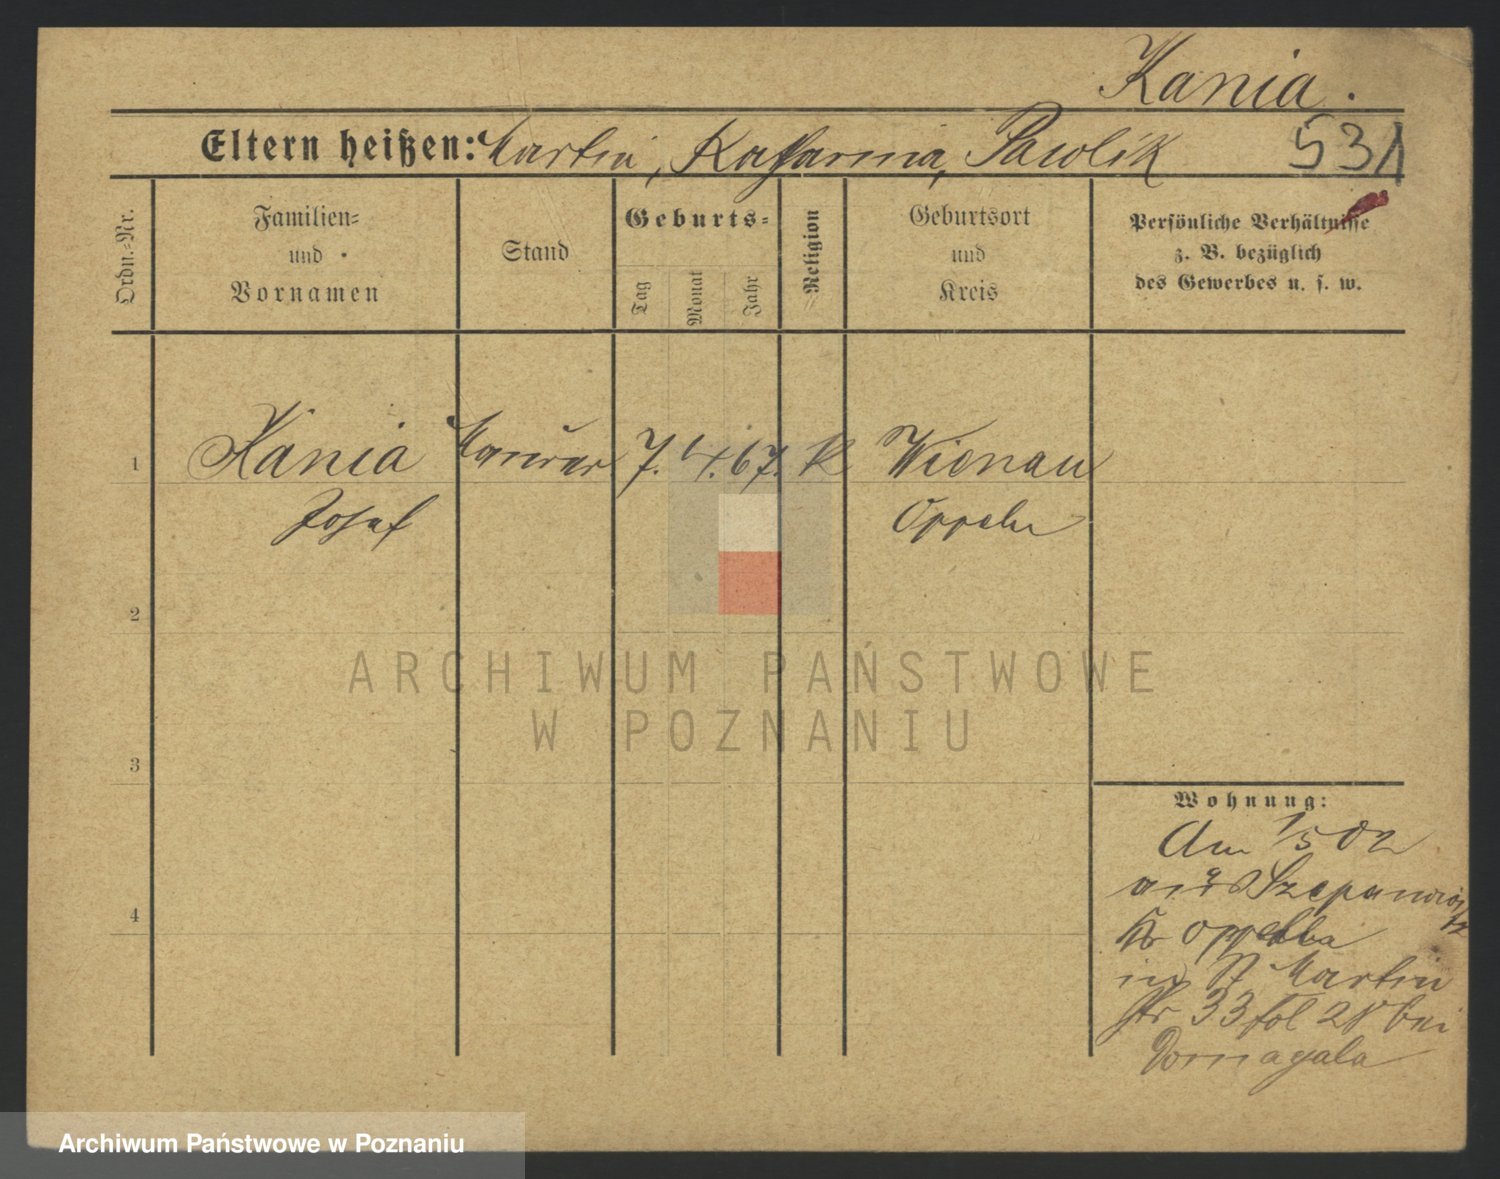 Kania.
Eltern heißen: Martin, Katharina, Pawlik
531
Ordn.=Nr.
Familien=
und
Vornamen
Stand
Geburts=
Tag
Monat
Jahr
Religion
Geburtsort
und
Kreis
Persönliche Verhältnisse
z. B. bezüglich
des Gewerbes u. s. w.
1 Kania Maurer 7. 4. 67. K Wienau
Josef Oppeln
2
3
4
Wohnung:
Am 1/5 02
aus Szepanowitz
Kr Oppeln
in St Martin
Str 33 bei
Domagala
ARCHIWUM PAŃSTWOWE
W POZNANIU
Archiwum Państwowe w Poznaniu